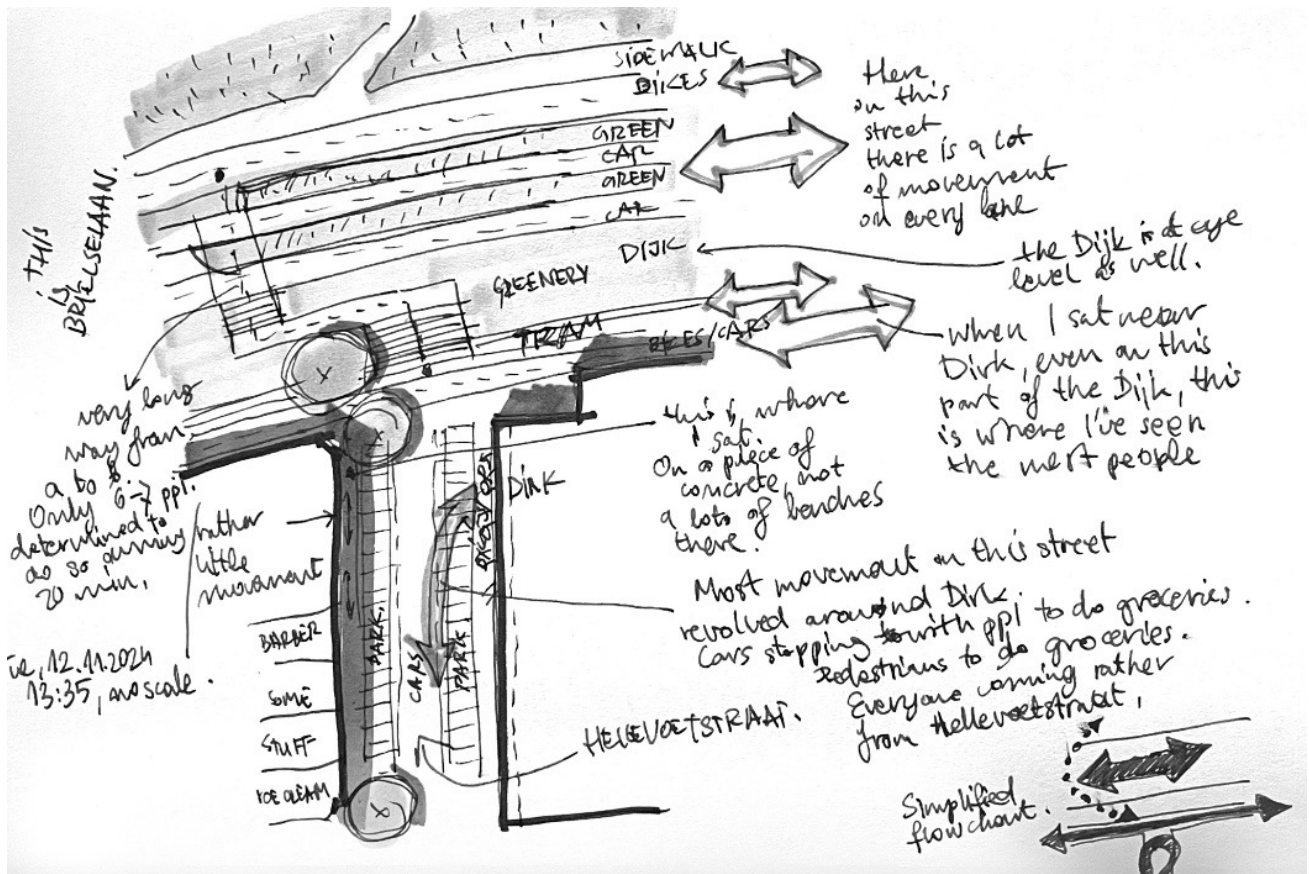 SIDEWALK
BIKES
GREEN
CAR
GREEN
CAR
DIJK
GREENERY
TRAM
BIKES/CARS
Here
on this
street
there is a lot
of movement
on every lane
the Dijk is at eye
level as well.
when I sat near
Dirk, even on this
part of the Dijk, this
is where I've seen
the most people
THIS
IS
BRIELSELAAN.
very long
way from
a to b.
Only 6-7 ppl.
determined to
do so during
20 min.
rather
little
movement
12.11.2024
13:35, no scale.
BARBER
SOME
STUFF
ICE CREAM
PARK.
CARS
PARK
DIRK
this is where
I sat.
On a piece of
concrete, not
a lots of benches
there.
Most movement on this street
revolved around Dirk.
Cars stopping with ppl to do groceries.
Pedestrians to do groceries.
Everyone coming rather
from Hellevoetstraat.
HELLEVOETSTRAAT.
Simplified
flowchart.